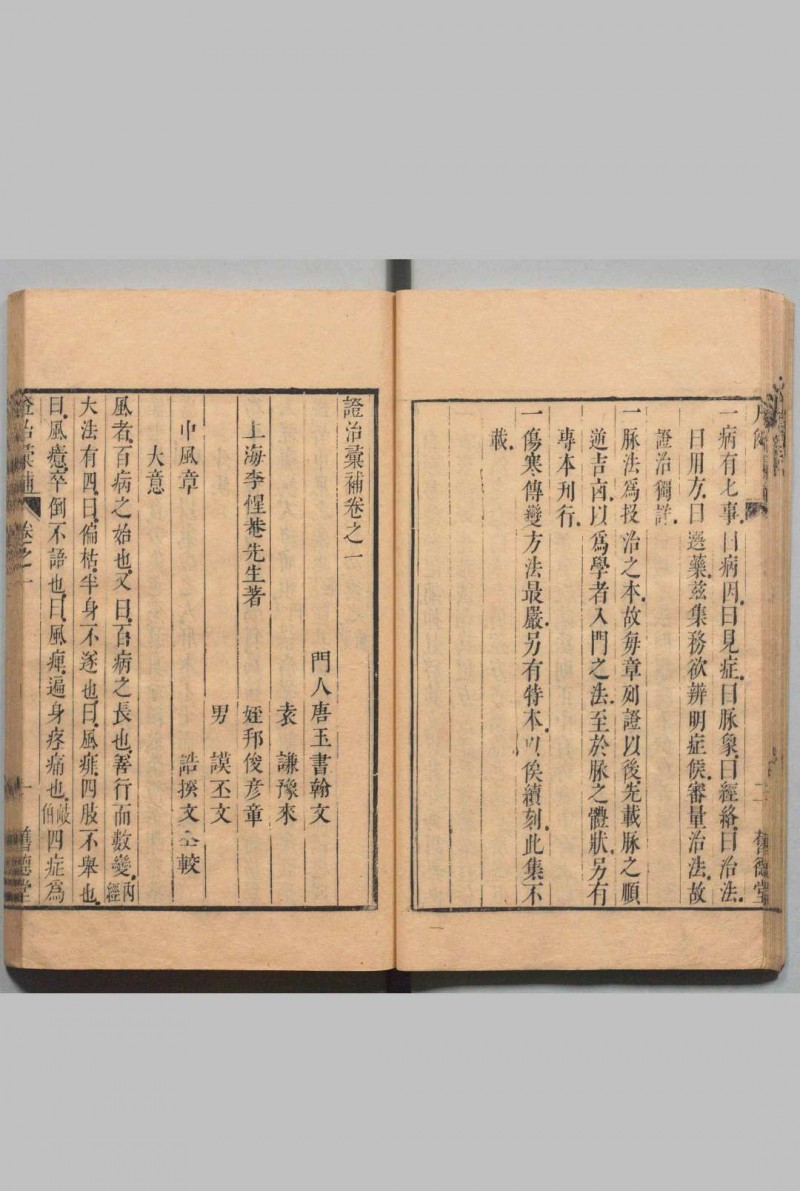 凡例
舊德堂
一病有七事曰病因曰見症曰脉象曰經絡曰治法
曰用方曰選藥茲集務欲辨明症候審量治法故
證治獨詳
一脉法爲投治之本故每章列證以後先載脉之順
逆吉凶以爲學者入門之法至於脉之體狀另有
專本刊行
一傷寒傳變方法最嚴另有特本以俟續刻此集不
載
證治彙補卷之一
上海李惺菴先生著
門人唐玉書翰文
袁謙豫來
姪邦俊彦章
男謨丕文
誥撰文仝較
中風章
大意
風者百病之始也又曰百病之長也善行而數變內經
大法有四曰偏枯半身不遂也曰風痱四肢不舉也
曰風癔卒倒不語也曰風痺遍身疼痛也四症爲
證治彙補 卷之一 一 舊德堂